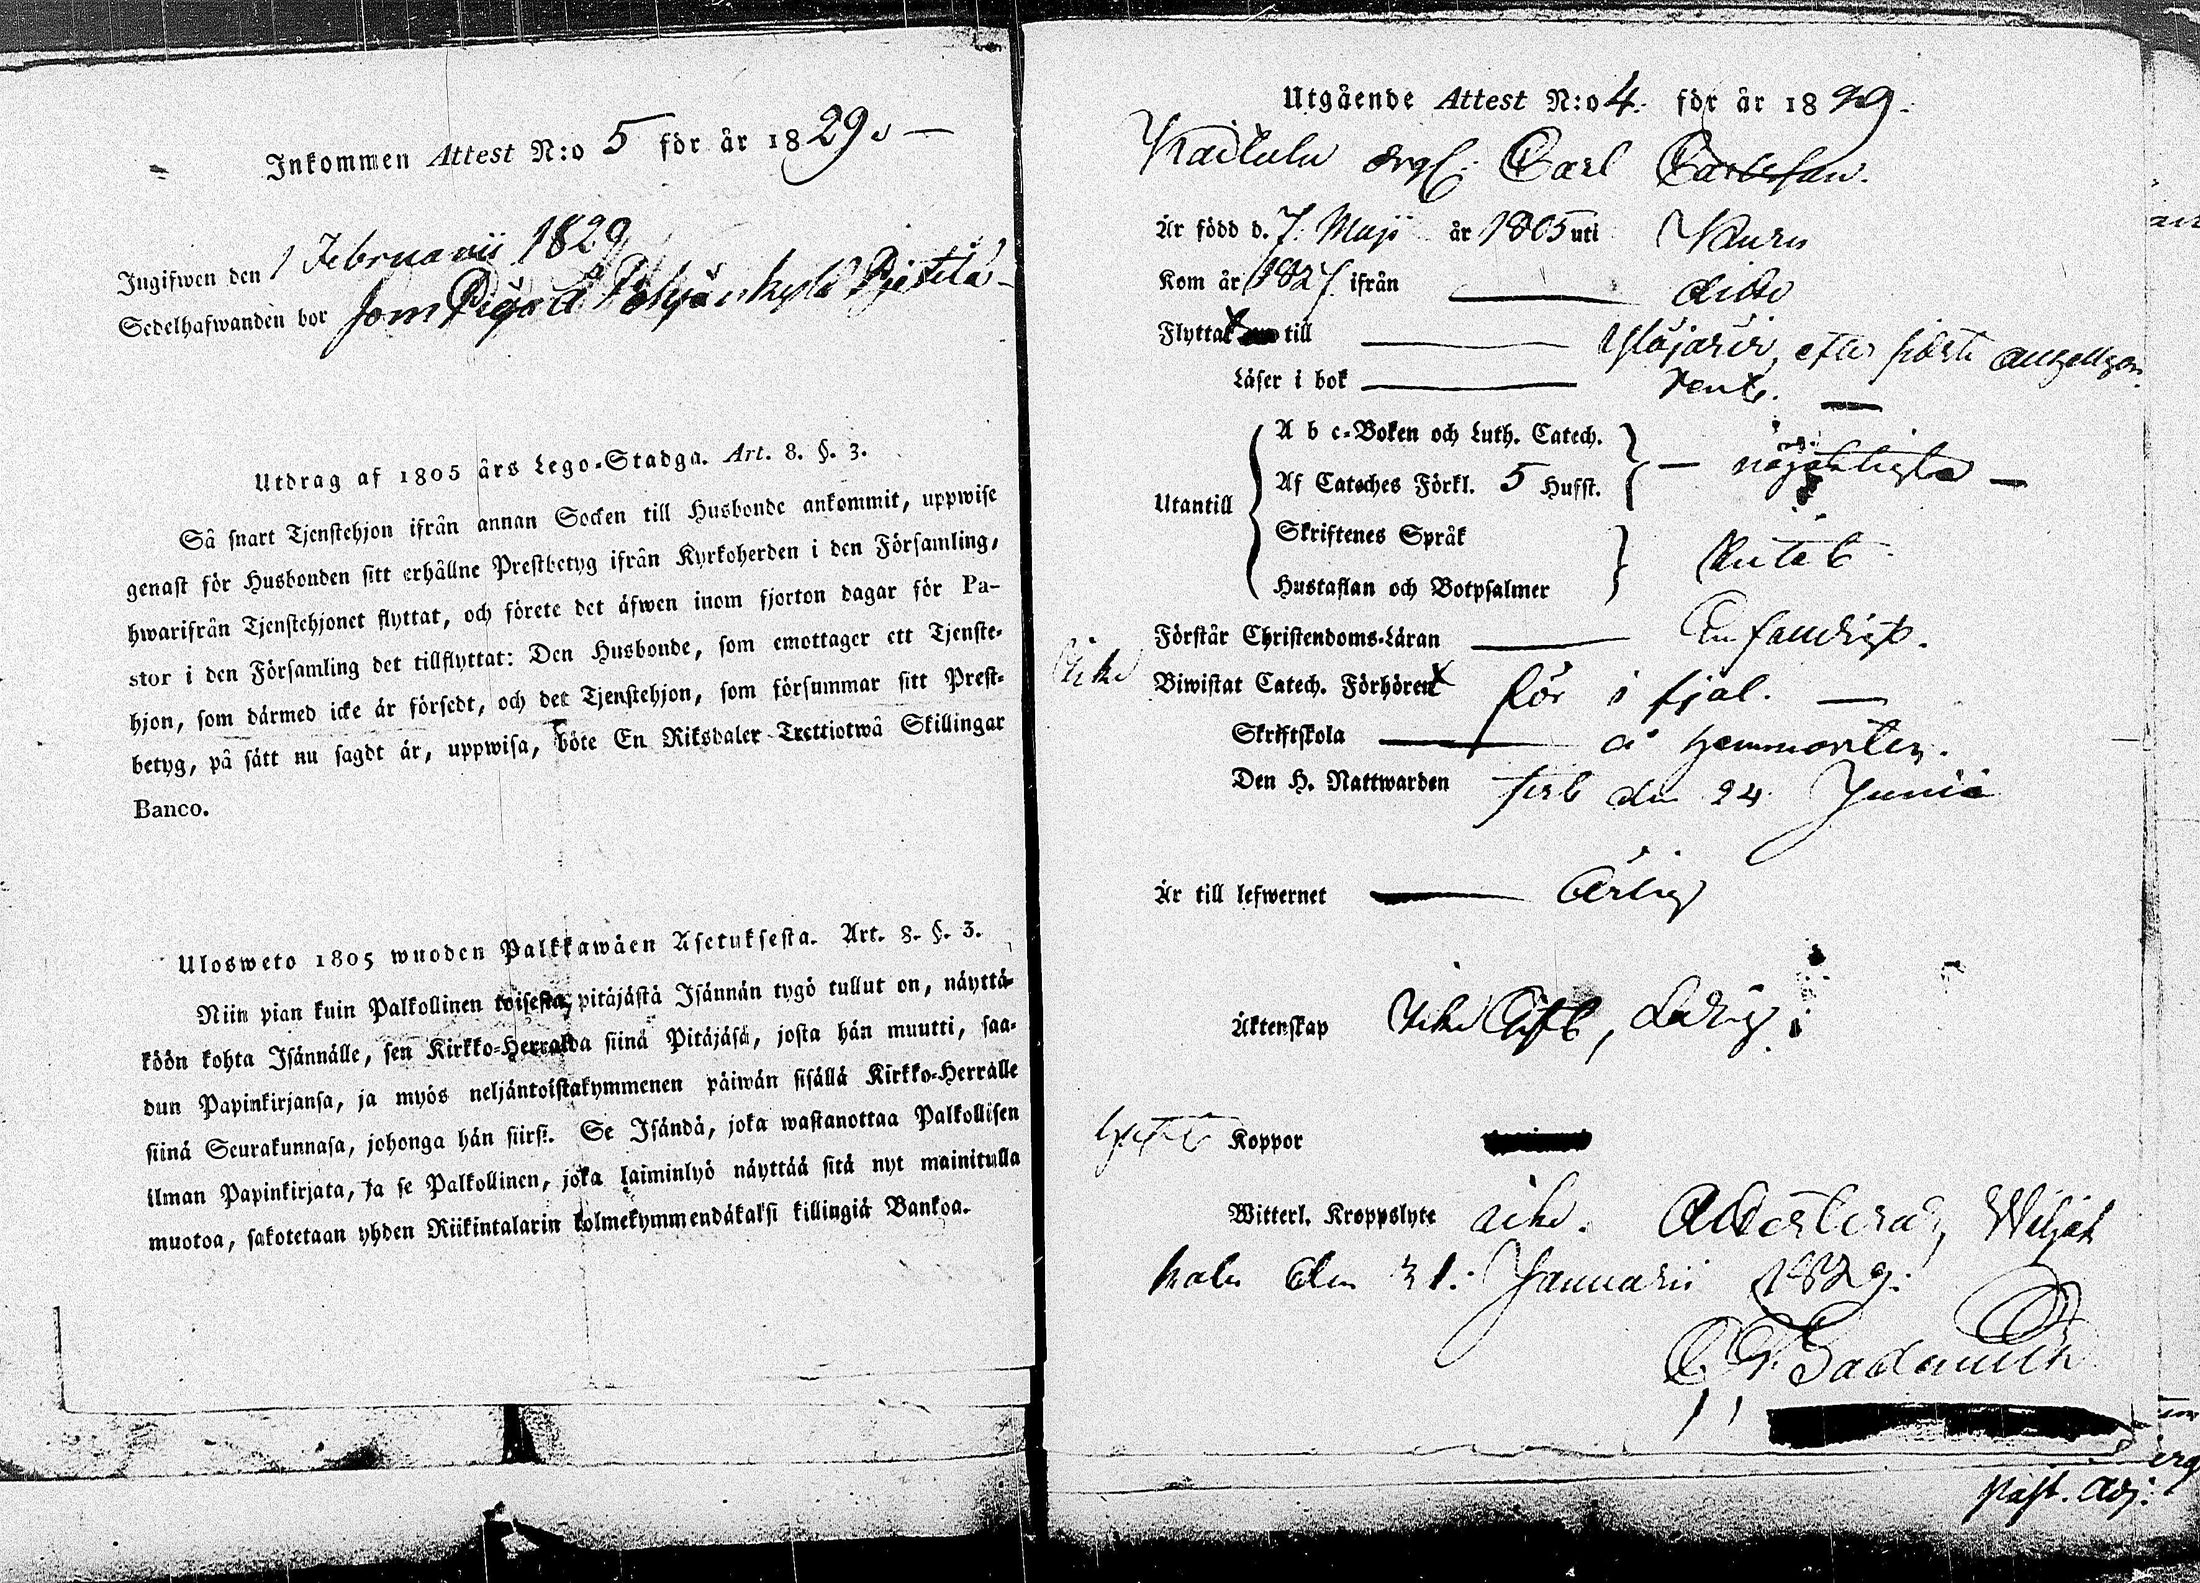 Inkommen Attest N:o 5 för år 1829.
Ingifwen den 1 Februarii 1829
Sedelhafwanden bor som Piga å Pohjankylä Pietilä
Utdrag af 1805 års Lego-Stadga. Art. 8. §. 3.
Så snart Tjenstehjon ifrån annan Socken till Husbonde ankommit, uppwise
genast för Husbonden sitt erhållne Prestbetyg ifrån Kyrkoherden i den Församling,
hwarifrån Tjenstehjonet flyttat, och förete det äfwen inom fjorton dagar för Pa-
stor i den Församling det tillflyttat: Den Husbonde, som emottager ett Tjenste-
hjon, som därmed icke är försedt, och det Tjenstehjon, som försummar sitt Prest-
betyg, på sätt nu sagdt är, uppwisa, böte En Riksdaler Trettiotwå Skillingar
Banco.
Ulosweto 1805 wuoden Palkkawäen Asetuksesta. Art. 8. §. 3.
Niin pian kuin Palkollinen toisesta pitäjästä Isännän tygö tullut on, näyttä-
köön kohta Isännälle, sen Kirkko-Herralda siinä Pitäjäsä, josta hän muutti, saa-
dun Papinkirjansa, ja myös neljäntoistakymmenen päiwän sisällä Kirkko-Herralle
siinä Seurakunnasa, johonga hän siirsi. Se Isändä, joka wastanottaa Palkollisen
ilman Papinkirjata, ja se Palkollinen, joka laiminlyö näyttää sitä nyt mainitulla
muotoa, sakotetaan yhden Riikintalarin kolmekymmendäkaksi killingiä Bankoa.
Utgående Attest N:o 4. för år 1829.
Carl Carlsson.
Är född d. 7 Maji år 1805 uti
Kom år 1827 ifrån dito
Flyttat till Ylöjärvi, efter
Läser i bok rent.
A b c-Boken och Luth. Catech.
Af Cateches Förkl. 5 Hufst. nöjaktigt
Utantill
Skriftenes Språk
Hustaflan och Botpsalmer
Förstår Christendoms-Läran Enfaldigt.
Biwistat Catech. Förhören för i fjol.
Skriftskola å hemmorten.
Den H. Nattwarden sist den 24 Junii
Är till lefwernet Ärlig
Äktenskap Icke Gift, Ledig
haft Koppor
Witterl. Kroppslyte icke. Attesterar, Wiljak
kala den 31. Januarii 1829.
Past. Adj.